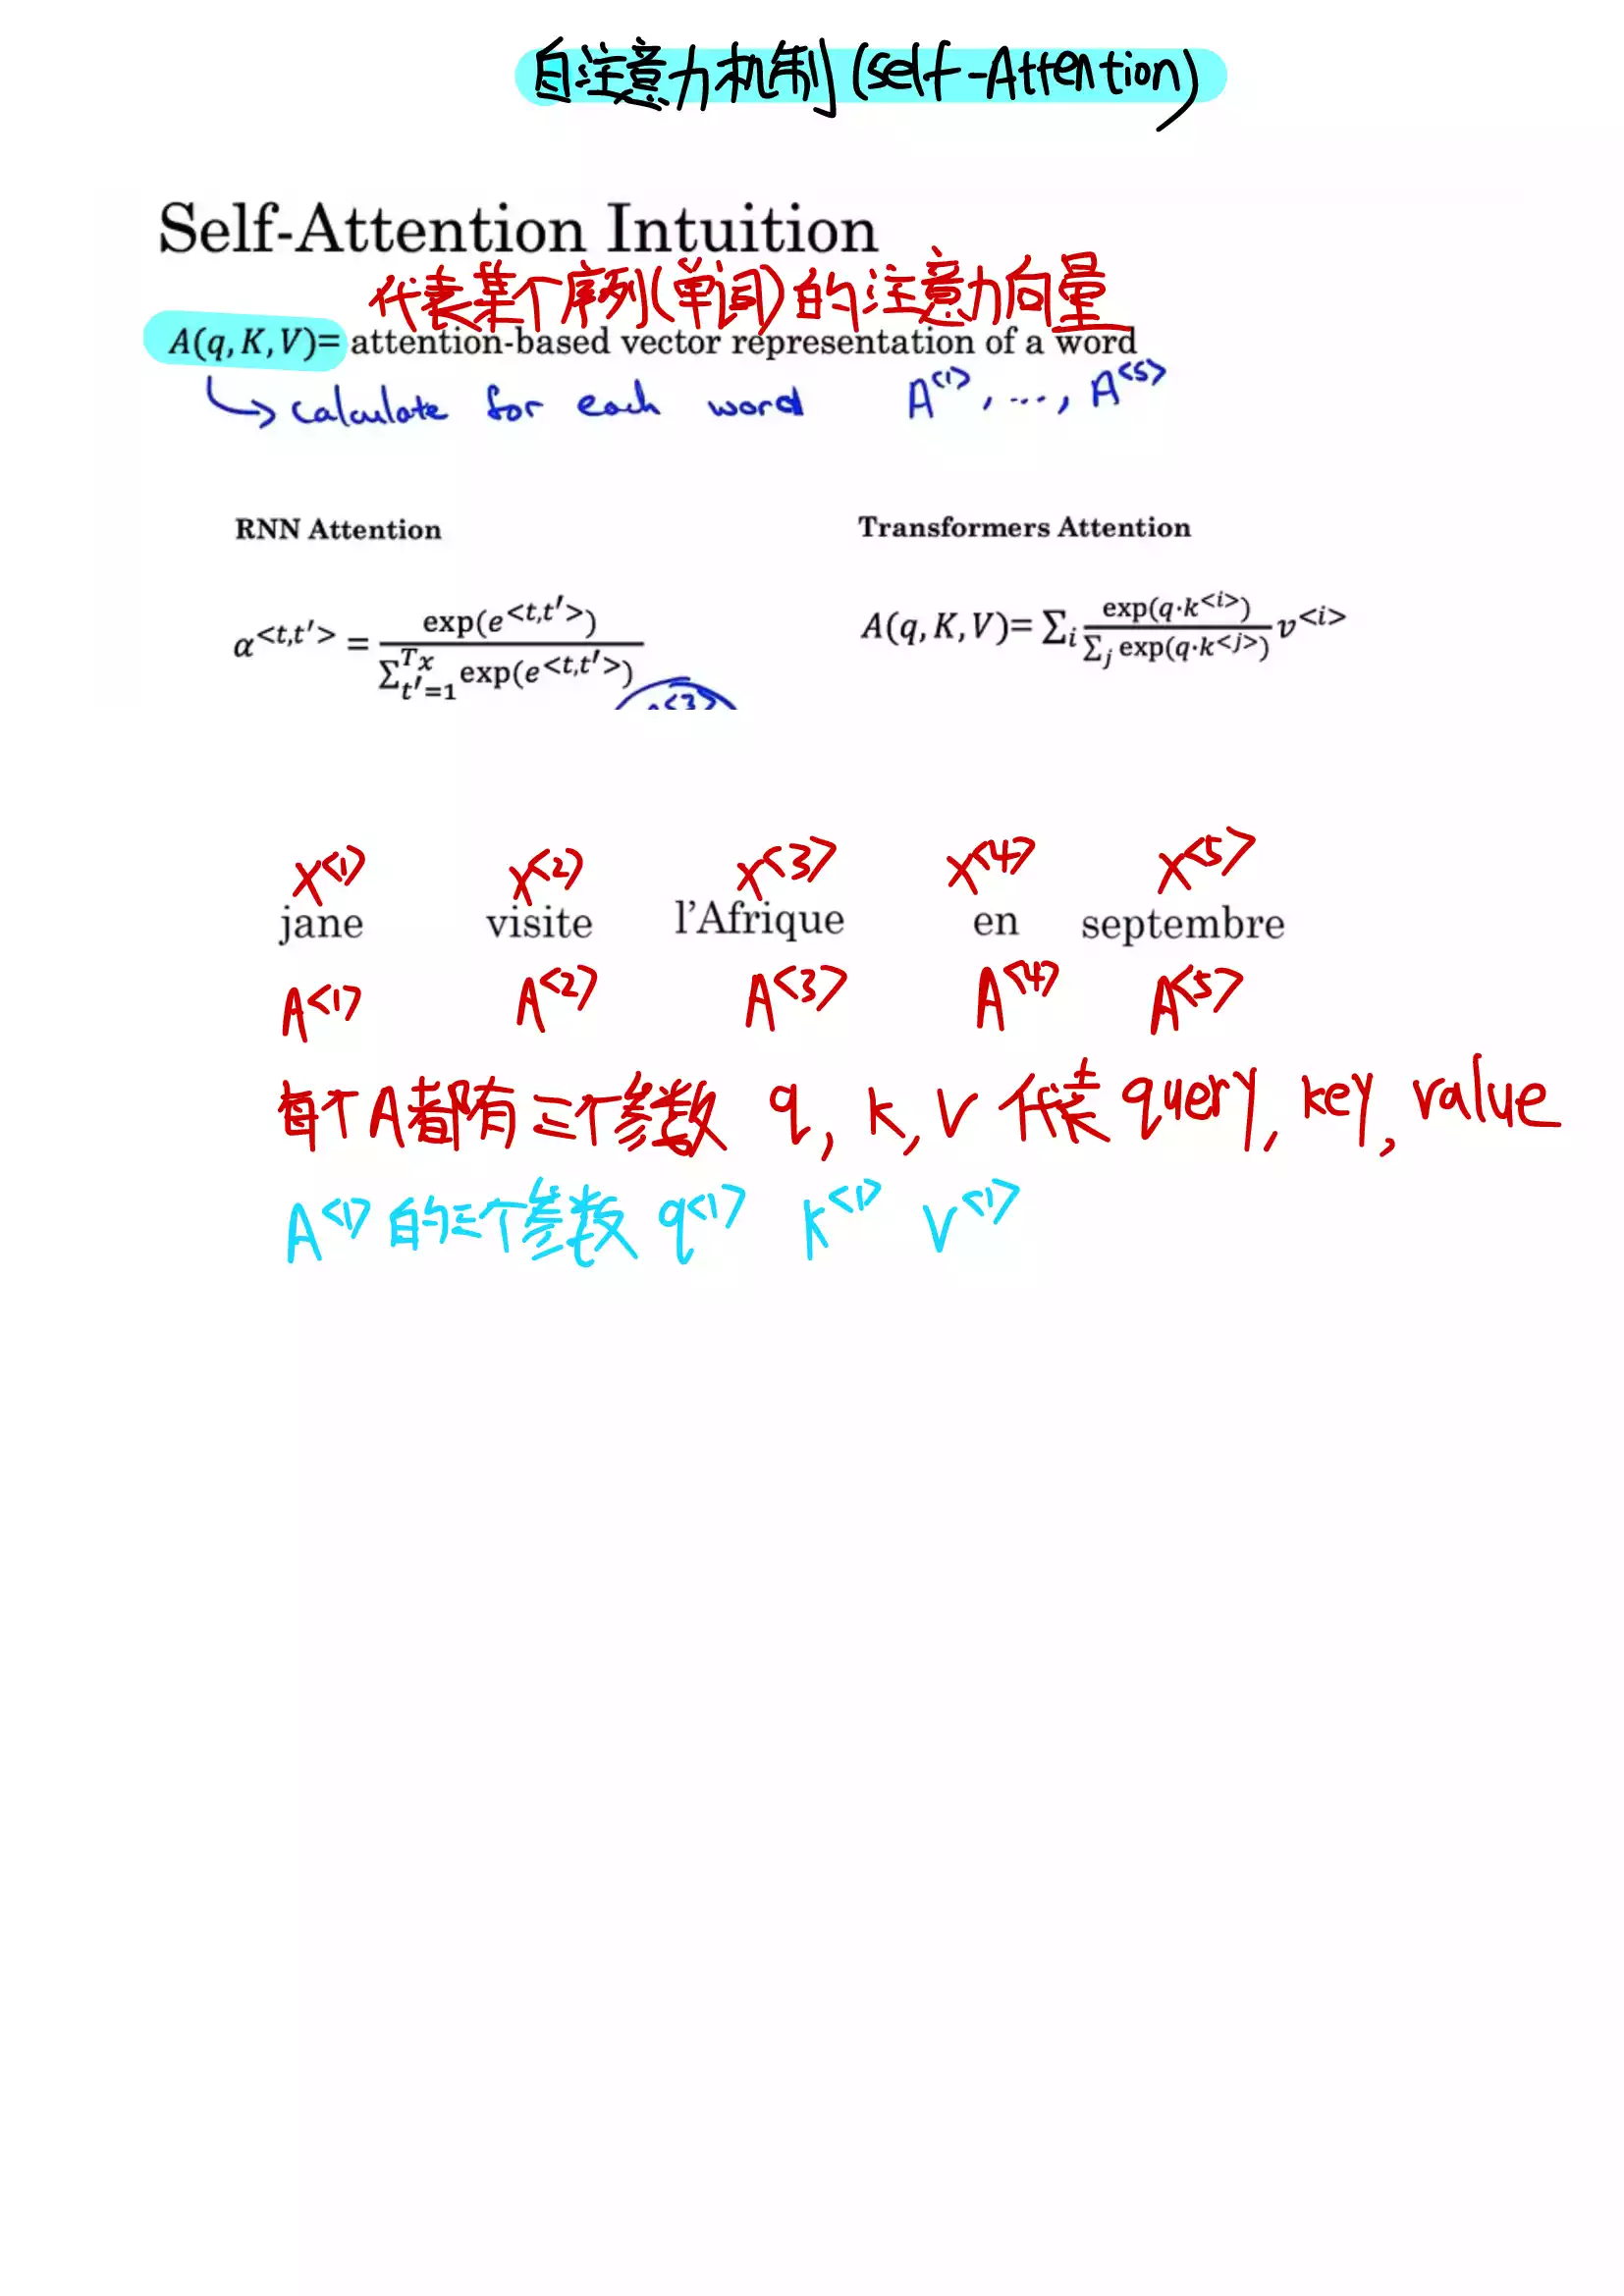 自注意力机制(self-Attention)
Self-Attention Intuition
代表某个序列(单词)的注意力向量
A(q,K,V)= attention-based vector representation of a word
↳ calculate for each word A^<1>, ..., A^<5>
RNN Attention
Transformers Attention
α^<t,t'> = exp(e^<t,t'>) / ∑_{t'=1}^{Tx} exp(e^<t,t'>)
A(q,K,V)= ∑_i exp(q·k^<i>) / ∑_j exp(q·k^<j>) v^<i>
x^<1> x^<2> x^<3> x^<4> x^<5>
jane visite l'Afrique en septembre
A^<1> A^<2> A^<3> A^<4> A^<5>
每个A都有三个参数 q, k, v 代表 query, key, value
A^<1>的三个参数 q^<1> k^<1> v^<1>